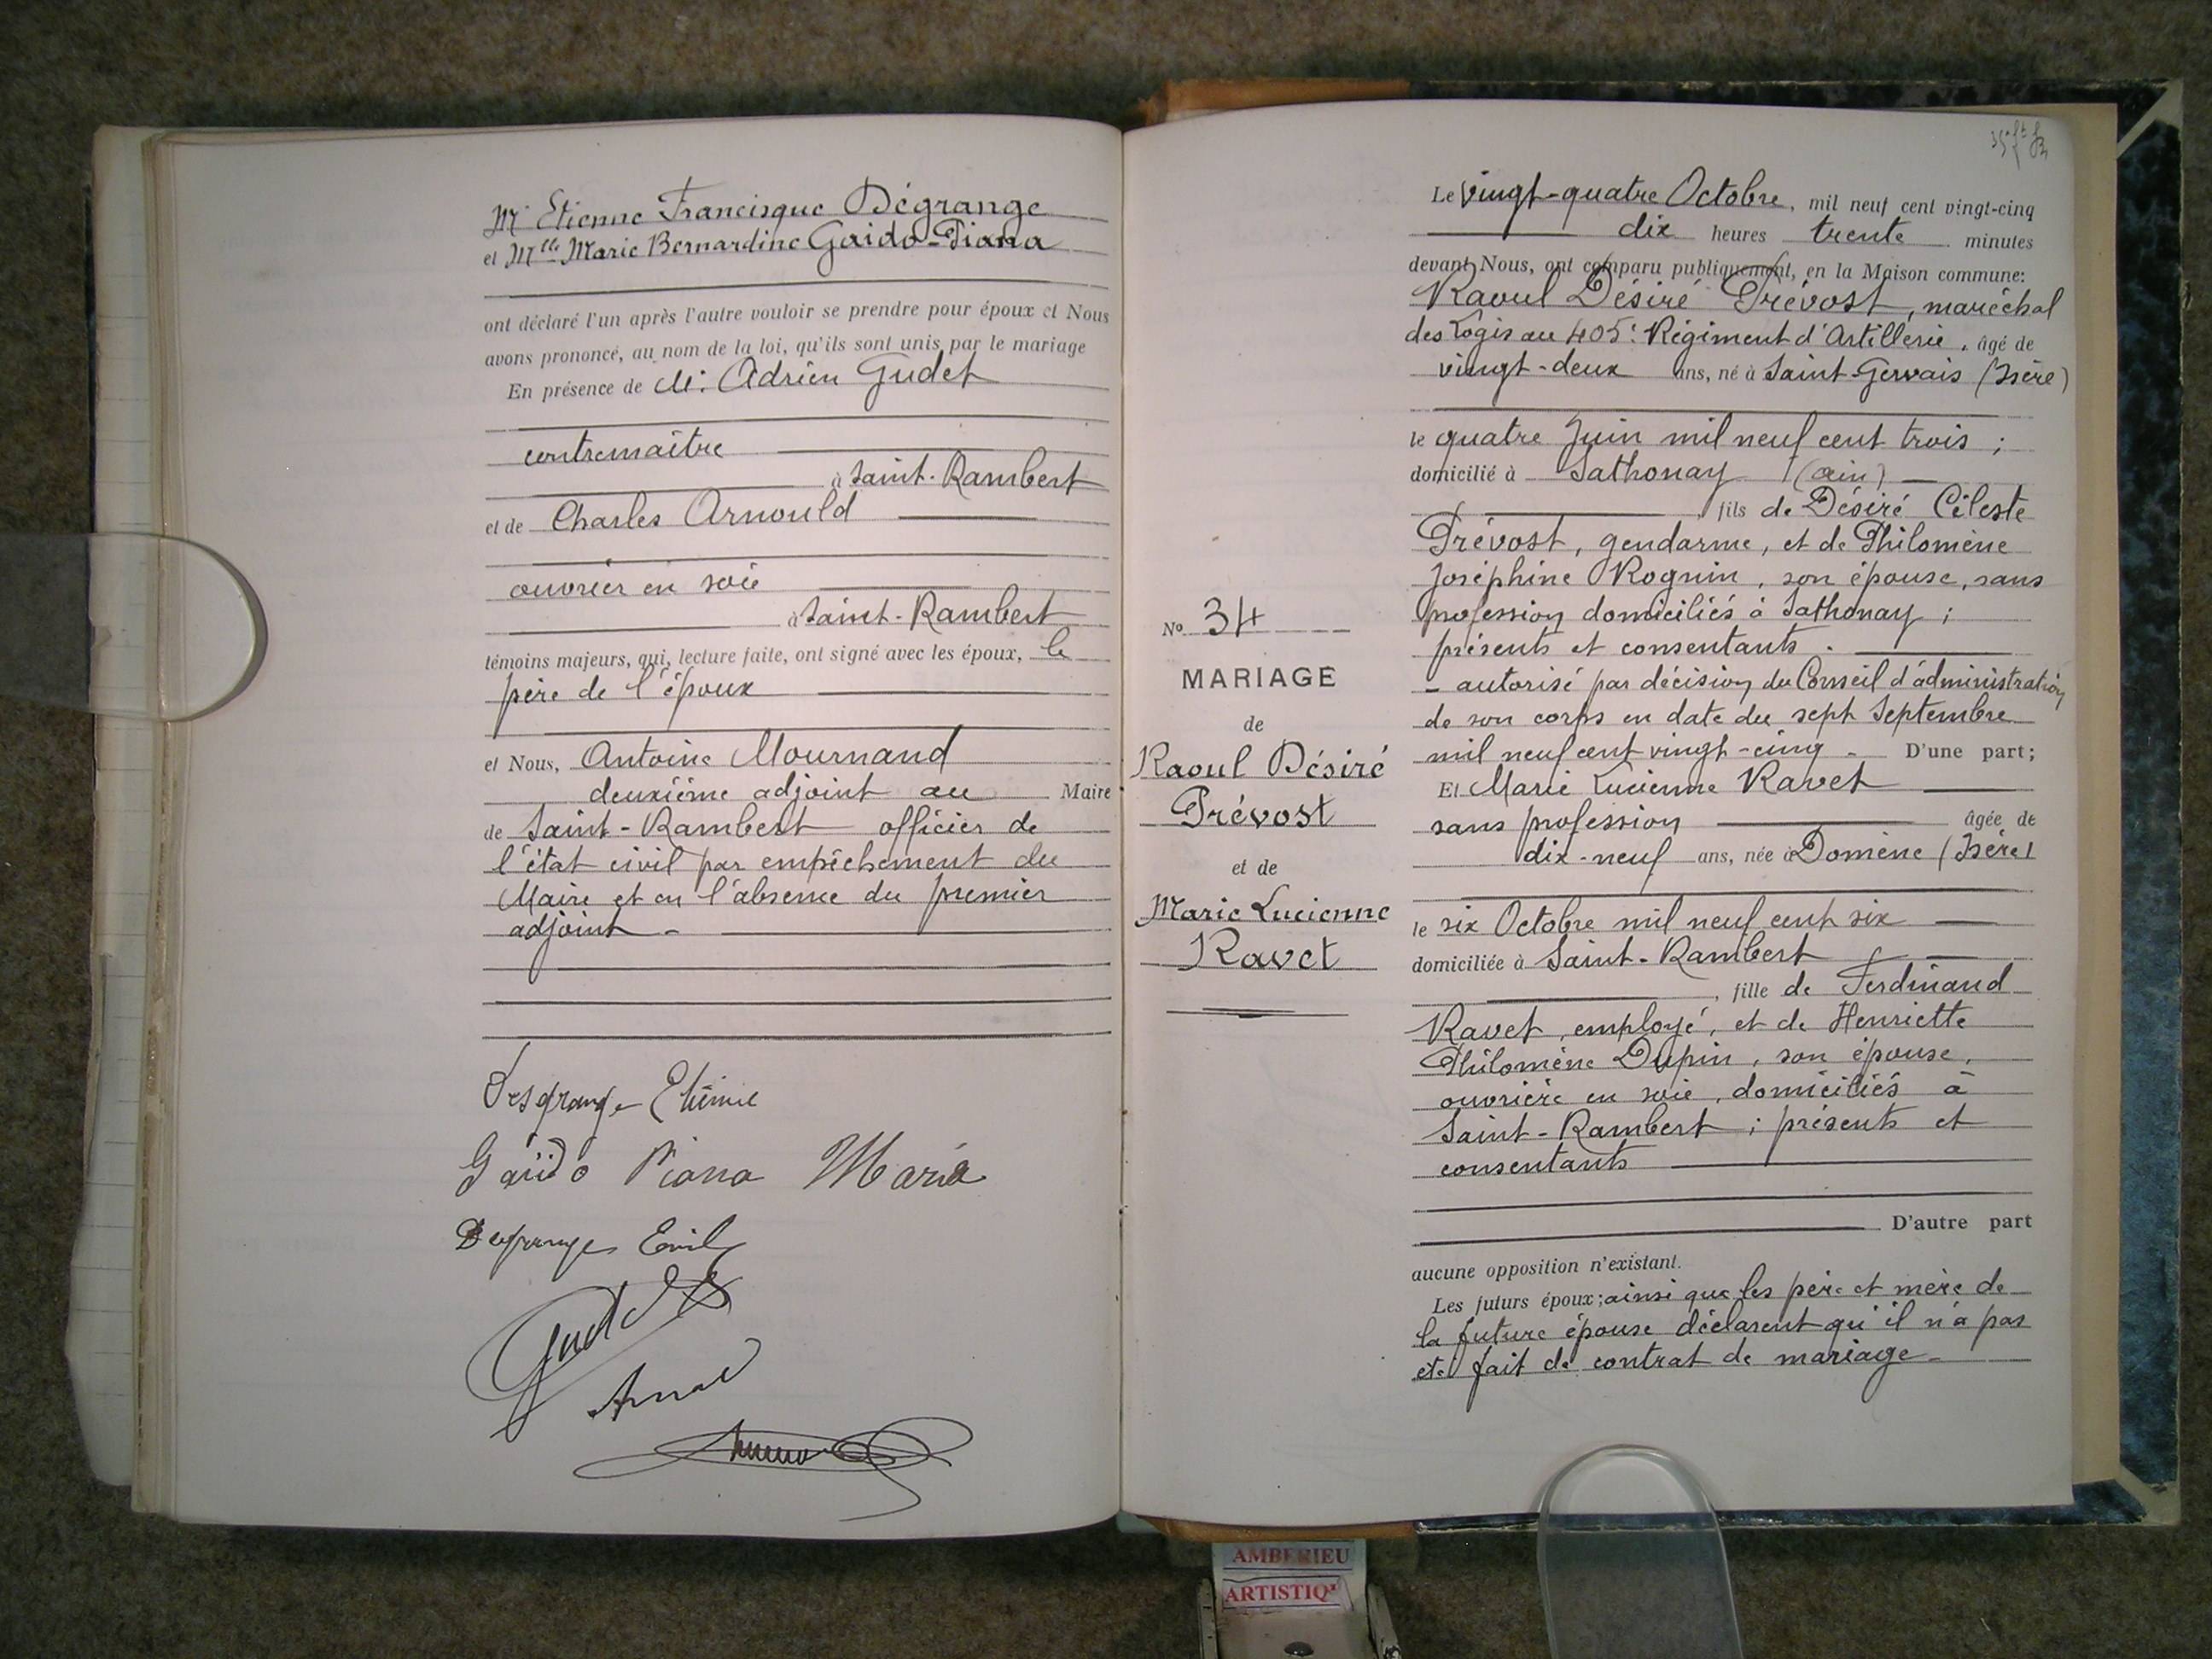 Mr Etienne Francisque Dégrange
et Mlle Marie Bernardine Gaido-Piana
ont déclaré l'un après l'autre vouloir se prendre pour époux et Nous
avons prononcé, au nom de la loi, qu'ils sont unis par le mariage
En présence de M. Adrien Gudet
contremaître
à Saint-Rambert
et de Charles Arnould
ouvrier en soie
à Saint-Rambert
témoins majeurs, qui, lecture faite, ont signé avec les époux, le
père de l'époux
et Nous, Antoine Mournand
deuxième adjoint au Maire
de Saint-Rambert officier de
l'état civil par empêchement du
Maire et en l'absence du premier
adjoint -
Desgrange Etienne
Gaïdo Piana Maria
Desgranges Emile
Gudet
Le vingt-quatre Octobre, mil neuf cent vingt-cinq
dix heures trente minutes
devant Nous, ont comparu publiquement, en la Maison commune:
Raoul Désiré Prévost, maréchal
des Logis au 405e Régiment d'Artillerie, âgé de
vingt-deux ans, né à Saint-Gervais (Isère)
le quatre Juin mil neuf cent trois ;
domicilié à Sathonay (Ain)
, fils de Désiré Céleste
Prévost, gendarme, et de Philomène
Joséphine Rognin, son épouse, sans
profession domiciliés à Sathonay ;
présents et consentants.
- autorisé par décision du Conseil d'administration
de son corps en date du sept Septembre
mil neuf cent vingt-cinq - D'une part;
Et Marie Lucienne Ravet
sans profession âgée de
dix-neuf ans, née à Domène (Isère)
le six Octobre mil neuf cent six
domiciliée à Saint-Rambert
, fille de Ferdinand
Ravet, employé, et de Henriette
Philomène Dupin, son épouse,
ouvrière en soie, domiciliés à
Saint-Rambert ; présents et
consentants
D'autre part
aucune opposition n'existant.
Les futurs époux; ainsi que les père et mère de
la future épouse déclarent qu'il n'a pas
été fait de contrat de mariage -
No 34
MARIAGE
de
Raoul Désiré
Prévost
et de
Marie Lucienne
Ravet
AMBERIEU
ARTISTIQ